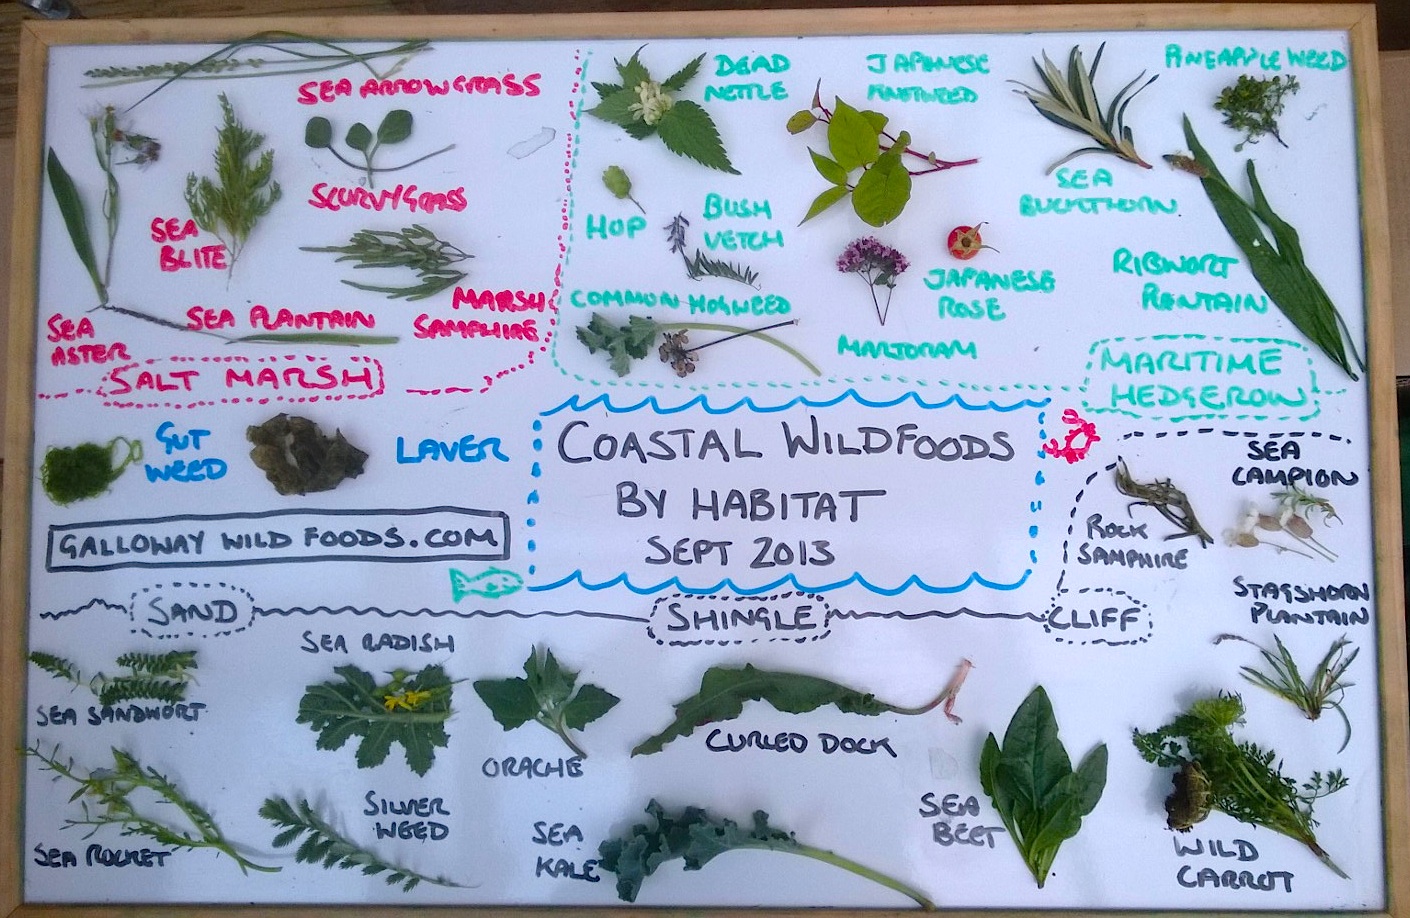 SEA ARROWGRASS
SCURVYGRASS
SEA
BLITE
MARSH
SAMPHIRE
SEA PLANTAIN
SEA
ASTER
SALT MARSH
DEAD
NETTLE
JAPANESE
KNOTWEED
PINEAPPLE WEED
SEA
BUCKTHORN
HOP
BUSH
VETCH
COMMON HOGWEED
JAPANESE
ROSE
MARJORAM
RIBWORT
PLANTAIN
MARITIME
HEDGEROW
GUT
WEED
LAVER
GALLOWAY WILD FOODS.COM
COASTAL WILDFOODS
BY HABITAT
SEPT 2013
SEA
CAMPION
ROCK
SAMPHIRE
STAGSHORN
PLANTAIN
SAND
SHINGLE
CLIFF
SEA RADISH
SEA SANDWORT
ORACHE
CURLED DOCK
SILVER
WEED
SEA ROCKET
SEA
KALE
SEA
BEET
WILD
CARROT